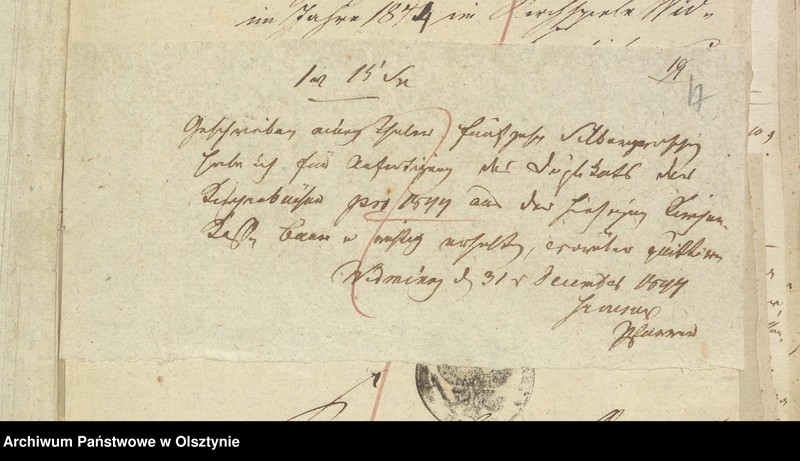 im Jahre 1874 im Kirchspiele Wid-
19
1 rt 15 Sgr
Geschrieben einen Thaler fünfzehn Silbergroschen
habe ich für Anfertigung des Duplikats der
Kirchenbücher pro 1844 aus der hiesigen Kirchen-
Kasse baar u richtig erhalten, worüber quittire
Widminnen d 31 December 1844
Pfarrer
Archiwum Państwowe w Olsztynie